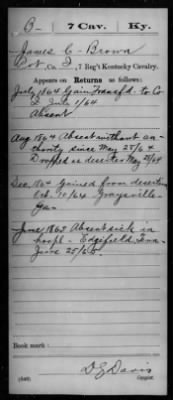 B- | 7 Cav. | Ky.
James C. Brown
Pvt., Co. I, 7 Reg't Kentucky Cavalry.
Appears on Returns as follows:
July 1864 Gain Transf'd to Co
I June 1/64
Absent
Aug 1864 Absent without au-
thority since May 25/64
Dropped as deserter May 25/64
Dec. 1864 Gained from desertion
Oct. 10/64 Graysville
Ga-
June 1865 Absent sick in
hospl - Edgefield, Tenn
June 25/65.
Book mark:
D E Davis
Copyist.